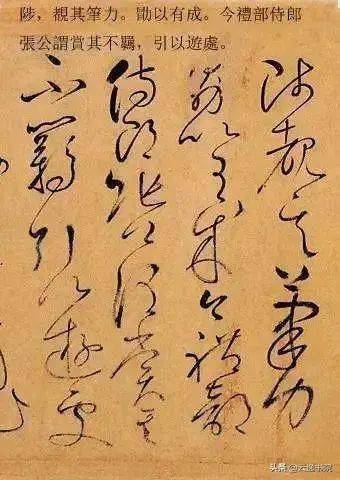 陟，覩其筆力。勖以有成。今禮部侍郎
張公謂賞其不羈，引以遊處。
陟覩其筆力
勖以有成今禮部
侍郎張公謂賞其
不羈引以遊處
头条 @云逸书院